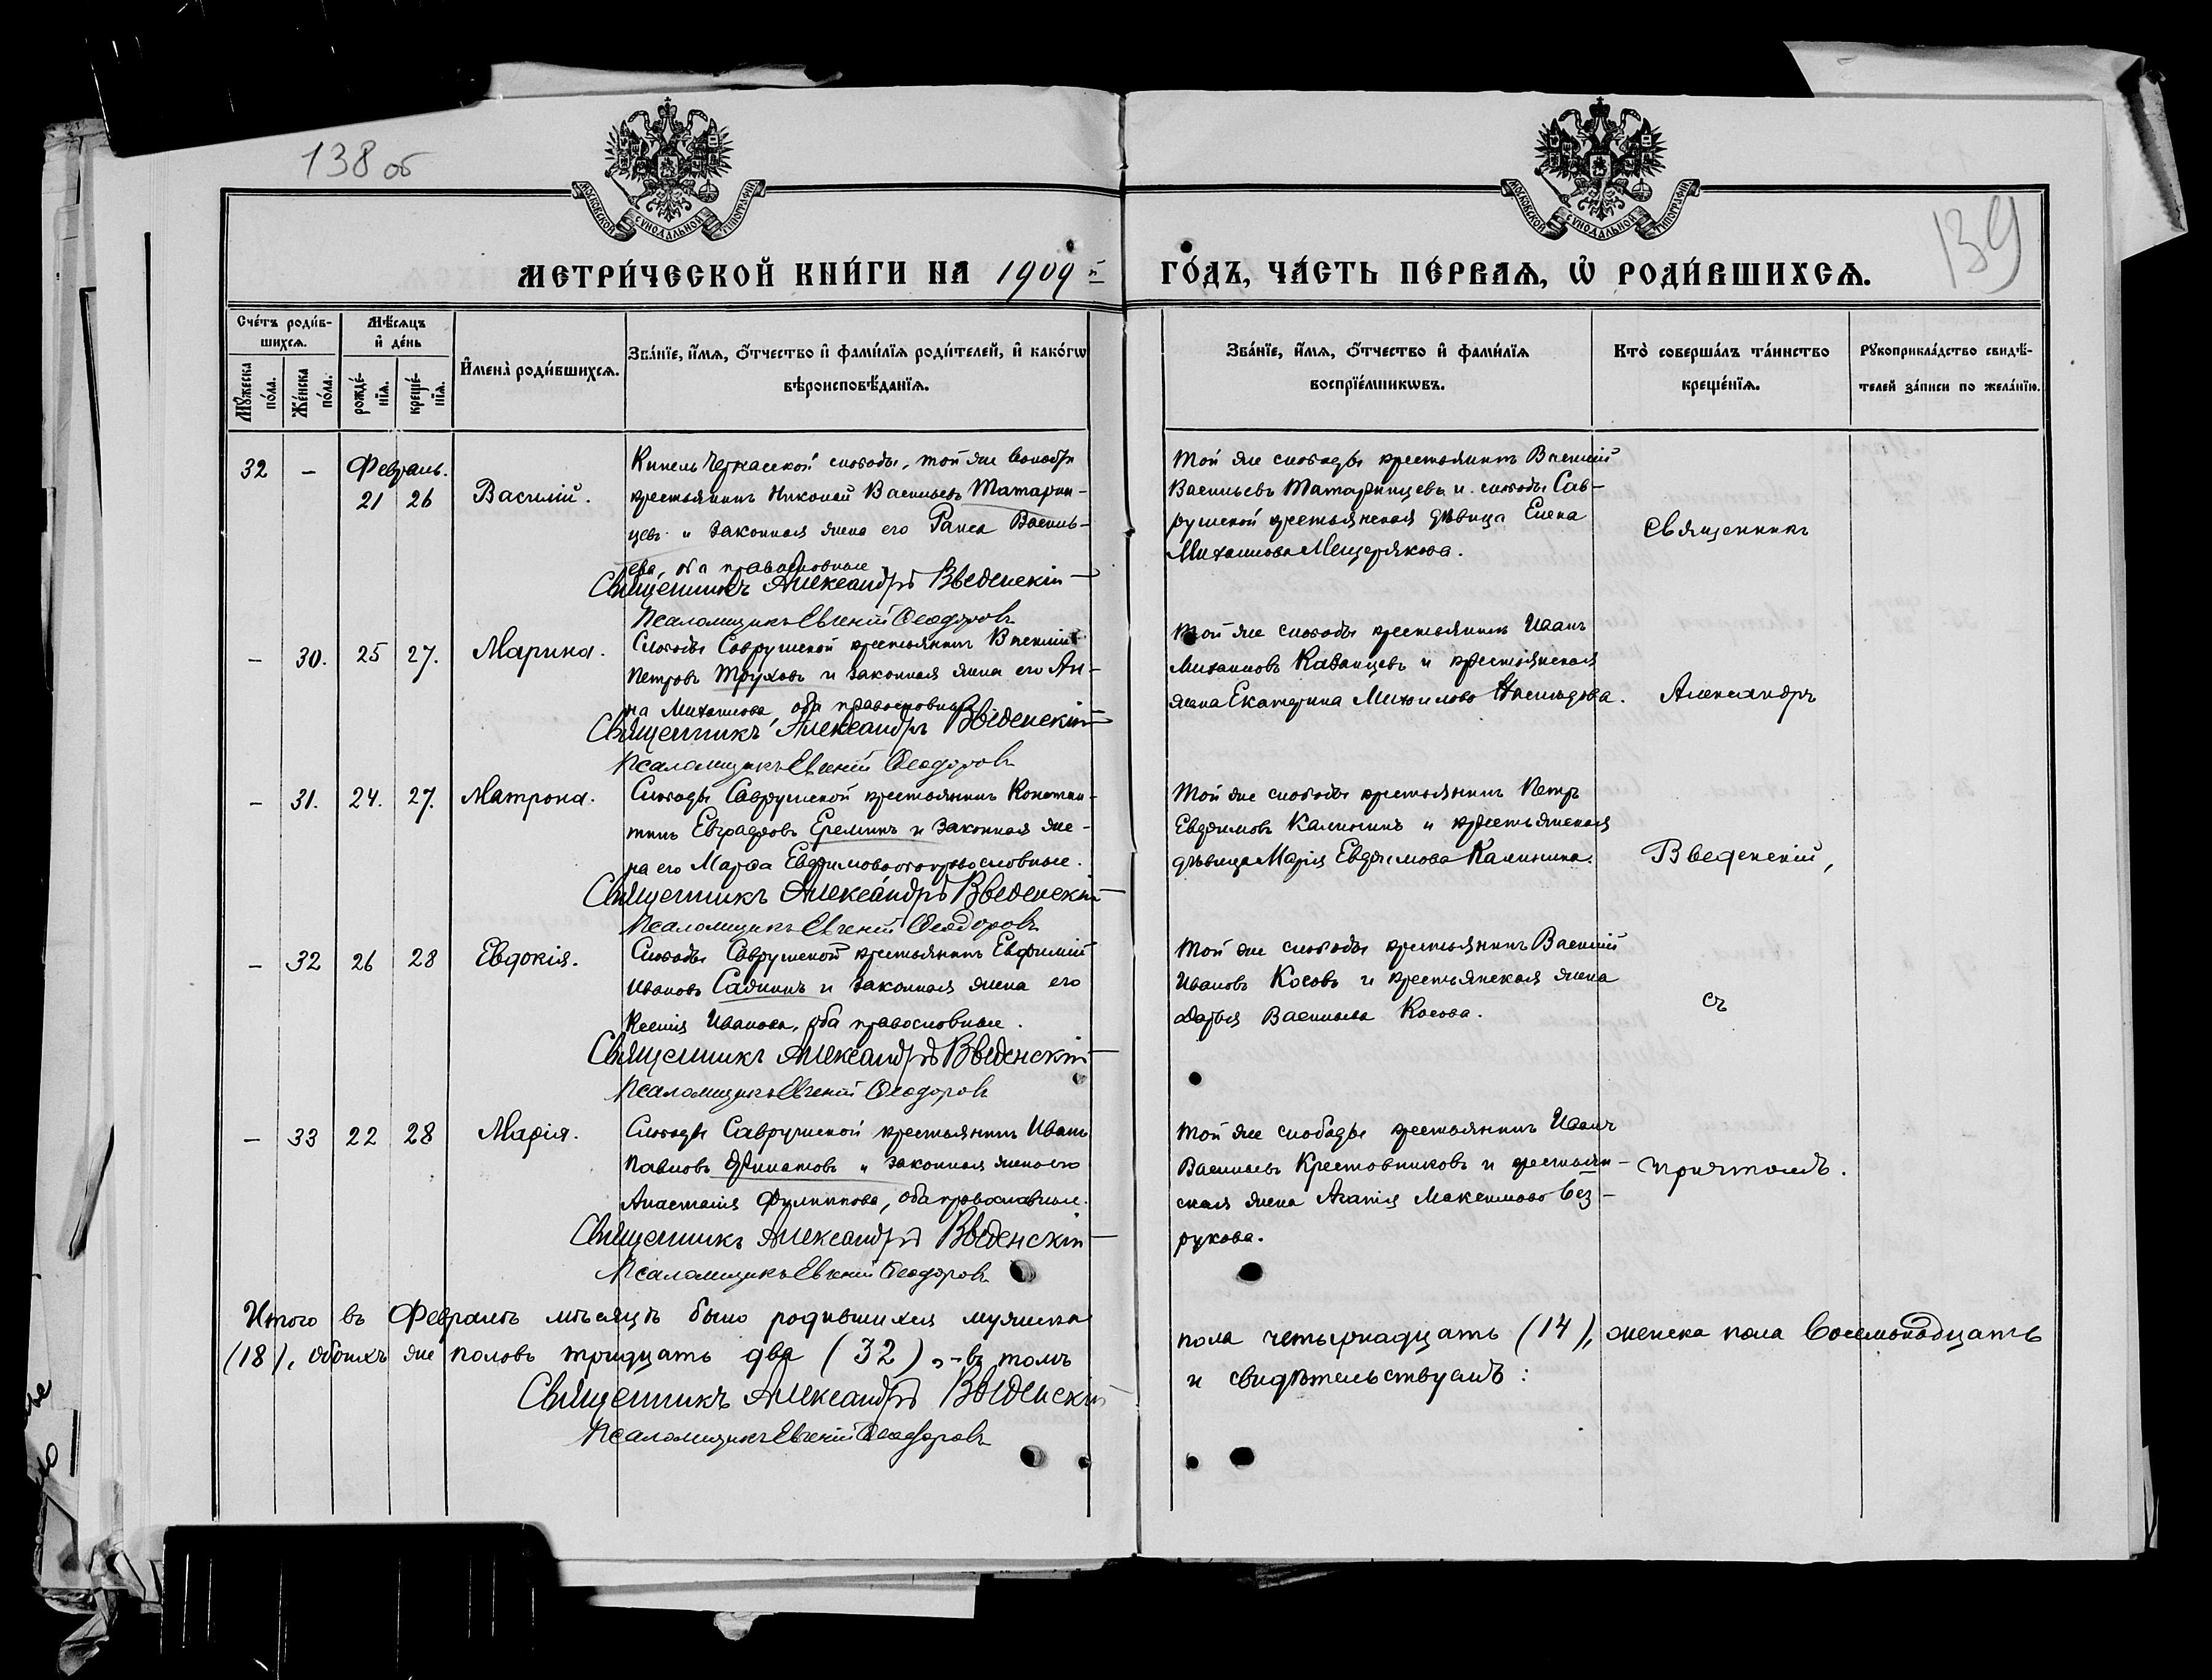 138 об
139
МОСКОВСКОЙ СѴНОДАЛЬНОЙ ТИПОГРАФИИ
МОСКОВСКОЙ СѴНОДАЛЬНОЙ ТИПОГРАФИИ
МЕТРИ́ЧЕСКОЙ КНИ́ГИ НА 1909 й ГО́ДЪ, ЧА́СТЬ ПЕ́РВАѦ, Ѡ҆ РОДИ́ВШИХСѦ.
Сче́тъ роди́в-
шихсѧ.
Мѣ́сѧцъ
и҆ де́нь
Мꙋ́жеска по́ла.
Же́нска по́ла.
рожде́-
нїѧ.
креще́-
нїѧ.
И҆мена̀ роди́вшихсѧ.
Зва́нїе, и҆́мѧ, ѻ҆́тчество и҆ фами́лїѧ роди́телей, и҆ како́гѡ
вѣроисповѣ́данїѧ.
Зва́нїе, и҆́мѧ, ѻ҆́тчество и҆ фами́лїѧ
воспрїе́мникѡвъ.
Кто̀ соверша́лъ та́инство
креще́нїѧ.
Рꙋкоприкла́дство свидѣ́-
телей за́писи по жела́нїю.
32 – Февраль.
21 26 Василій.
Кинель Черкасской слободы, той же волости
крестьянинъ Николай Васильевъ Татарин-
цевъ и законная жена его Раиса Василь-
ева, оба православные
Священникъ Александръ Введенскій
Псаломщикъ Евгеній Ѳеодоровъ
Той же слободы крестьянинъ Василій
Васильевъ Татаринцевъ и слободы Сав-
рушской крестьянская дѣвица Елена
Михаилова Мещерякова.
Священникъ
– 30. 25 27. Марина.
Слободы Саврушской крестьянинъ Василій
Петровъ Труховъ и законная жена его Ан-
на Михаилова, оба православные
Священникъ Александръ Введенскій
Псаломщикъ Евгеній Ѳеодоровъ
Той же слободы крестьянинъ Иванъ
Михаиловъ Казанцевъ и крестьянская
жена Екатерина Михаилова Наслѣдова.
Александръ
– 31. 24. 27. Матрона.
Слободы Саврушской крестьянинъ Констан-
тинъ Евграфовъ Ереминъ и законная же-
на его Марѳа Евфимова оба православные.
Священникъ Александръ Введенскій
Псаломщикъ Евгеній Ѳеодоровъ
Той же слободы крестьянинъ Петръ
Евфимовъ Калининъ и крестьянская
дѣвица Марія Евфимова Калинина.
Введенскій,
– 32 26 28 Евдокія.
Слободы Саврушской крестьянинъ Евфимій
Ивановъ Сапинъ и законная жена его
Ксенія Иванова, оба православные.
Священникъ Александръ Введенскій
Псаломщикъ Евгеній Ѳеодоровъ
Той же слободы крестьянинъ Василій
Ивановъ Косовъ и крестьянская жена
Дарья Васильева Косова.
съ
– 33 22 28 Марія.
Слободы Саврушской крестьянинъ Иванъ
Павловъ и законная жена его
Анастасія Филиппова, оба православные.
Священникъ Александръ Введенскій
Псаломщикъ Евгеній Ѳеодоровъ
Той же слободы крестьянинъ Иванъ
Васильевъ Крестовниковъ и крестьян-
ская жена Агапія Максимова Без-
рукова.
причтомъ.
Итого въ Февралѣ мѣсяцѣ было родившихся мужеска пола четырнадцать (14), женска пола восемьнадцать
(18), обоихъ же половъ тридцать два (32), – въ томъ и свидѣтельствуемъ:
Священникъ Александръ Введенскій
Псаломщикъ Евгеній Ѳеодоровъ